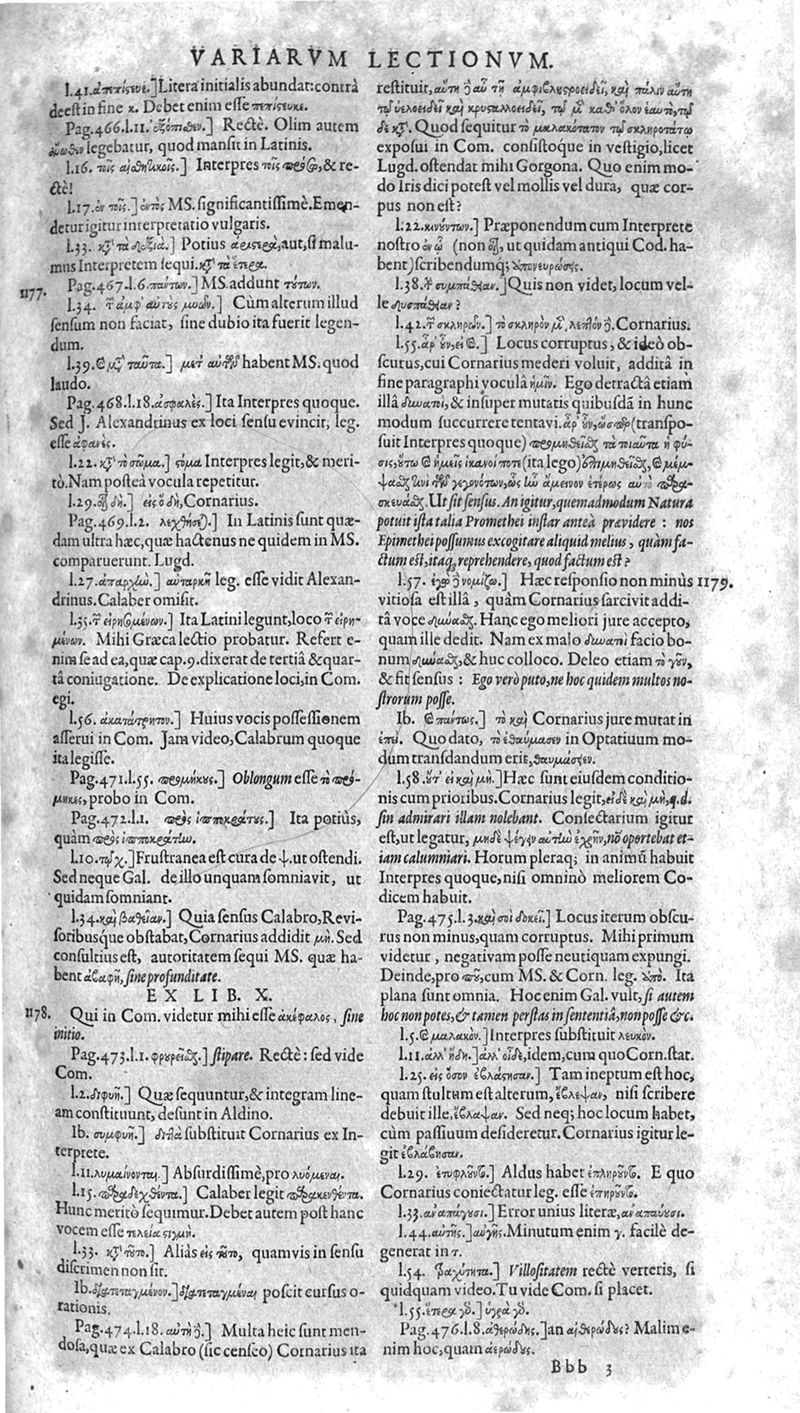 VARIARVM LECTIONVM.
l.41. ἀπεπίστευε.] Litera initialis abundat: contrà
deest in fine κ. Debet enim esse πεπίστευκε.
Pag. 466. l.11. ἐξόπιθεν.] Rectè. Olim autem
legebatur, quod mansit in Latinis.
l.16. τοῖς] Interpres τοῖς & re-
ctè!
l.17. ὀν τοῖς.] ὀντὸς MS. significantissimè. Emen-
detur igitur interpretatio vulgaris.
l.33. κỳ τὰ λοξιά.] Potius ἀριστερὰ, aut, si malu-
mus Interpretem sequi. κỳ τὰ ἕτερα.
1177. Pag. 467. l.6. πάντων.] MS. addunt τύτων.
l.34. ἀμφ' αὐτὺς μυῶν.] Cùm alterum illud
sensum non faciat, sine dubio ita fuerit legen-
dum.
l.39. ταῦτα.] μετ' habent MS. quod
laudo.
Pag. 468. l.18. ἀσφαλὲς.] Ita Interpres quoque.
Sed J. Alexandrinus ex loci sensu evincit, leg.
esse ἀφανές.
l.22. κỳ τὸ σῶμα.] Interpres legit, & meri-
tò. Nam posteà vocula repetitur.
l.29. δή.] εἰς ὃ δὴ, Cornarius.
Pag. 469. l.2. λεχθήσε).] In Latinis sunt quæ-
dam ultra hæc, quæ hactenus ne quidem in MS.
comparuerunt. Lugd.
l.27. ἀπαρχίω.] αὐταρκῆ leg. esse vidit Alexan-
drinus. Calaber omisit.
l.35. εἰρημένων.] Ita Latini legunt, loco εἰρη-
μένων. Mihi Græca lectio probatur. Refert e-
nim se ad ea, quæ cap.9. dixerat de tertiâ & quar-
tâ coniugatione. De explicatione loci, in Com.
egi.
l.56. ἀκατάτρητον.] Huius vocis possessionem
asserui in Com. Jam video, Calabrum quoque
ita legisse.
Pag. 471. l.55. προμήκους.] Oblongum esse τὸ πρό-
μηκες, probo in Com.
Pag. 472. l.1. πρὸς ἱπποκράτους.] Ita potiùs,
quàm πρὸς ἱπποκράτίω.
l.10. τῷ χ.] Frustranea est cura de ψ. ut ostendi.
Sed neque Gal. de illo unquam somniavit, ut
quidam somniant.
l.34. καὶ βαθεῖαν.] Quia sensus Calabro, Revi-
soribusque obstabat, Cornarius addidit μή. Sed
consultius est, autoritatem sequi MS. quæ ha-
bent ἀβαφῆ, sine profunditate.
EX LIB. X.
1178. Qui in Com. videtur mihi esse ἀκέφαλος, sine
initio.
Pag. 473. l.1. φρυρεῖσθ.] stipare. Rectè: sed vide
Com.
l.2. διφυῆ.] Quæ sequuntur, & integram line-
am constituunt, desunt in Aldino.
Ib. συμφυῆ.] διπλᾶ substituit Cornarius ex In-
terprete.
l.11. λυμαίνονται.] Absurdissimè, pro λυόμεναι.
l.15. παραδεχθέντα.] Calaber legit παρακενθέντα.
Hunc meritò sequimur. Debet autem post hanc
vocem esse τελεία στιγμή.
l.33. κỳ τῦτο.] Aliàs εἰς τῦτο, quamvis in sensu
discrimen non sit.
Ib. διαπεταγμένον.] διαπεταγμέναι poscit cursus o-
rationis.
Pag. 474. l.18. αὕτη ἢ.] Multa heic sunt men-
dosa, quæ ex Calabro (sic censeo) Cornarius ita
restituit, αὕτη ἢ αὖ τῇ ἀμφιβληστροειδεῖ, καὶ πάλιν αὕτη
τῷ ὑελοειδεῖ καὶ κρυσταλλοειδεῖ, τῷ μ̅ καθ' ὅλον ἑαυτὸ, τῷ
δὲ κỳ. Quod sequitur τὸ μαλακότατον τῷ σκληροτάτῳ
exposui in Com. consistoque in vestigio, licet
Lugd. ostendat mihi Gorgona. Quo enim mo-
do Iris dici potest vel mollis vel dura, quæ cor-
pus non est?
l.22. κινούντων.] Præponendum cum Interprete
nostro ὀν ᾧ (non ut quidam antiqui Cod. ha-
bent) scribendumq; ὑπονευρώσης.
l.38. συμπάθειαν.] Quis non videt, locum vel-
le δυσπάθειαν?
l.42. σκληρῶν.] τὸ σκληρὸν μ̅, λεπτὸν ἢ. Cornarius.
l.55. ἆρ' οὖν, εἰ.] Locus corruptus, & ideò ob-
scurus, cui Cornarius mederi voluit, additâ in
fine paragraphi voculâ ἡμῖν. Ego detractâ etiam
illâ δυναπι, & insuper mutatis quibusdã in hunc
modum succurrere tentavi. ἆρ' οὖν, ὥσπερ (transpo-
suit Interpres quoque) προμηθεῖσθ τὰ τοιαῦτα ἡ φύ-
σις, ὕτω ἡμεῖς ἱκανοί ποτε (ita lego) ἐπιμηθεῖσθ, μέμ-
ψασθ γεγονότων, ὡς ἄμεινον ἑτέρως αὐτὸ παρα-
σκευάσ. Ut sit sensus. An igitur, quemadmodum Natura
potuit ista talia Promethei instar anteà prævidere: nos
Epimethei possumus excogitare aliquid melius, quàm fa-
ctum est, itaq; reprehendere, quod factum est?
l.57. ἐγὼ ἢ νομίζω.] Hæc responsio non minùs 1179.
vitiosa est illâ, quàm Cornarius sarcivit addi-
tâ voce δύνασθ. Hanc ego meliori jure accepto,
quam ille dedit. Nam ex malo δυναπι facio bo-
num δύνασθ, & huc colloco. Deleo etiam τὸ γοῦν,
& fit sensus: Ego verò puto, ne hoc quidem multos no-
strorum posse.
Ib. πάντως.] τὸ καὶ Cornarius jure mutat in
ἐπεί. Quo dato, τὸ ἐθαύμασεν in Optativum mo-
dum transdandum erit, θαυμάσειεν.
l.58. ὕτ' εἰ καὶ μή.] Hæc sunt eiusdem conditio-
nis cum prioribus. Cornarius legit, εἰ δὲ καὶ μὴ, q.d.
sin admirari illam nolebant. Consectarium igitur
est, ut legatur, μηδὲ ψέγειν αὐτίω ἐχρῆν, nõ oportebat et-
iam calumniari. Horum pleraq; in animũ habuit
Interpres quoque, nisi omninò meliorem Co-
dicem habuit.
Pag. 475. l.3. καὶ σοὶ δοκεῖ.] Locus iterum obscu-
rus non minus, quam corruptus. Mihi primum
videtur, negativam posse neutiquam expungi.
Deinde, pro cum MS. & Corn. leg. ὑπὸ. Ita
plana sunt omnia. Hoc enim Gal. vult, si autem
hoc non potes, & tamen perstas in sententiâ, non posse &c.
l.5. μαλακόν.] Interpres substituit λευκόν.
l.11. ἀλλ' ἤδη.] ἀλλ' οἶδε, idem, cum quo Corn. stat.
l.25. εἰς ὅσον ἐβλάστησαν.] Tam ineptum est hoc,
quam stultum est alterum, ἔβλεψαν, nisi scribere
debuit ille, ἔβλαψαν. Sed neq; hoc locum habet,
cùm passivum desideretur. Cornarius igitur le-
git ἐβλάβησαν.
l.29. ἐτυφλοῦντο.] Aldus habet ἐπληροῦντο. E quo
Cornarius coniectatur leg. esse ἐπηροῦντο.
l.33. ἀναπάγυσι.] Error unius literæ, ἀναπαύυσι.
l.44. αὐτῆς.] αὐγῆς. Minutum enim γ. facilè de-
generat in τ.
l.54. βαχύτητα.] Villositatem rectè verteris, si
quidquam video. Tu vide Com. si placet.
l.55. ἕτερα γδ.] ὑγρὰ γδ.
Pag. 476. l.8. ἀθερώδης.] an αἰθερώδυς? Malim e-
nim hoc, quam ἀερώδυς.
Bbb 3